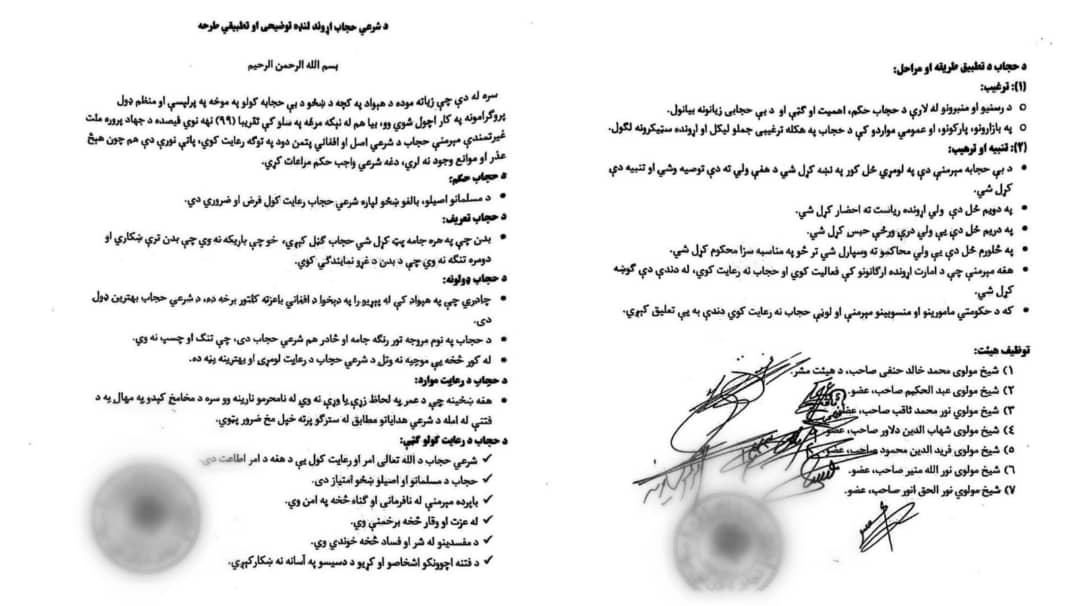 د شرعي حجاب اړوند لنډه توضیحي او تطبیقي طرحه
بسم الله الرحمن الرحیم
سره له دې چې زیاته موده د هېواد په کچه د ښځو د بې حجابه کولو په موخه په پرلپسې او منظم ډول
پروگرامونه په کار اچول شوي وو، بیا هم له نېکه مرغه په سلو کې تقریبا (۹۹) نهه نوي فیصده د جهاد پروره ملت
غیرتمندې مېرمنې حجاب د شرعي اصل او افغاني پتمن دود په توگه رعایت کوي، پاتې نورې دې هم چون هیڅ
عذر او موانع وجود نه لري، دغه شرعي واجب حکم مراعات کړي.
د حجاب حکم:
• د مسلمانو اصیلو، بالغو ښځو لپاره شرعي حجاب رعایت کول فرض او ضروري دي.
د حجاب تعریف:
• بدن چې په هره جامه پټ کړل شي حجاب گڼل کېږي، خو چې باریکه نه وي چې بدن ترې ښکاري او
دومره تنگه نه وي چې د بدن د غړو نمایندگي کوي.
د حجاب ډولونه:
• چادري چې په هېواد کې له پېړیو را په دېخوا د افغاني باعزته کلتور برخه ده، د شرعي حجاب بهترین ډول
دی.
• د حجاب په نوم مروجه تور رنگه جامه او څادر هم شرعي حجاب دی، چې تنگ او چسپ نه وي.
• له کور څخه بې موجبه نه وتل د شرعي حجاب د رعایت لومړی او بهترینه بڼه ده.
د حجاب د رعایت موارد:
• هغه ښځینه چې د عمر په لحاظ زړې یا وړې نه وي له نامحرمو نارینه وو سره د مخامخ کېدو په مهال یه د
فتنې له امله د شرعي هدایاتو مطابق له سترگو پرته خپل مخ ضرور پټوي.
د حجاب د رعایت کولو گټې:
✓ شرعي حجاب د الله تعالی امر او رعایت کول یې د هغه د امر اطاعت دی.
✓ حجاب د مسلمانو او اصیلو ښځو امتیاز دی.
✓ باپرده مېرمنې له نافرمانۍ او گناه څخه په امن وي.
✓ له عزت او وقار څخه برخمنې وي.
✓ د مفسدینو له شر او فساد څخه خوندي وي.
✓ د فتنه اچوونکو اشخاصو او کړیو د دسیسو په آسانه نه ښکارکېږي.
د حجاب د تطبیق طریقه او مراحل:
(۱): ترغیب:
○ د رسنیو او منبرونو له لارې د حجاب حکم، اهمیت او گټې او د بې حجابۍ زیانونه بیانول.
○ په بازارونو، پارکونو، او عمومي مواردو کې د حجاب په هکله ترغیبي جملو لیکل او اړونده سټیکرونه لگول.
(۲): تنبیه او ترهیب:
• د بې حجابه مېرمنې دې په لومړي ځل کور په نښه کړل شي د هغې ولي ته دې توصیه وشي او تنبیه دې
کړل شي.
• په دویم ځل دې ولي اړونده ریاست ته احضار کړل شي.
• په دریم ځل دې یې ولي درې ورځې حبس کړل شي.
• په څلورم ځل دې یې ولي محاکمو ته وسپارل شي تر څو په مناسبه سزا محکوم کړل شي.
• هغه مېرمنې چې د امارت اړونده ارگانونو کې فعالیت کوي او حجاب نه رعایت کوي، له دندې دې گوښه
کړل شي.
• که د حکومتي مامورینو او منسوبینو مېرمنې او لوڼې حجاب نه رعایت کوي دندې به یې تعلیق کېږي.
توظیف هیئت:
۱) شیخ مولوی محمد خالد حنفی صاحب، د هیئت مشر.
۲) شیخ مولوي عبد الحکیم صاحب، عضو.
۳) شیخ مولوي نور محمد ثاقب صاحب، عضو.
٤) شیخ مولوي شهاب الدین دلاور صاحب، عضو.
٥) شیخ مولوي فرید الدین محمود صاحب، عضو.
٦) شیخ مولوی نور الله منیر صاحب، عضو.
۷) شیخ مولوي نور الحق انور صاحب، عضو.